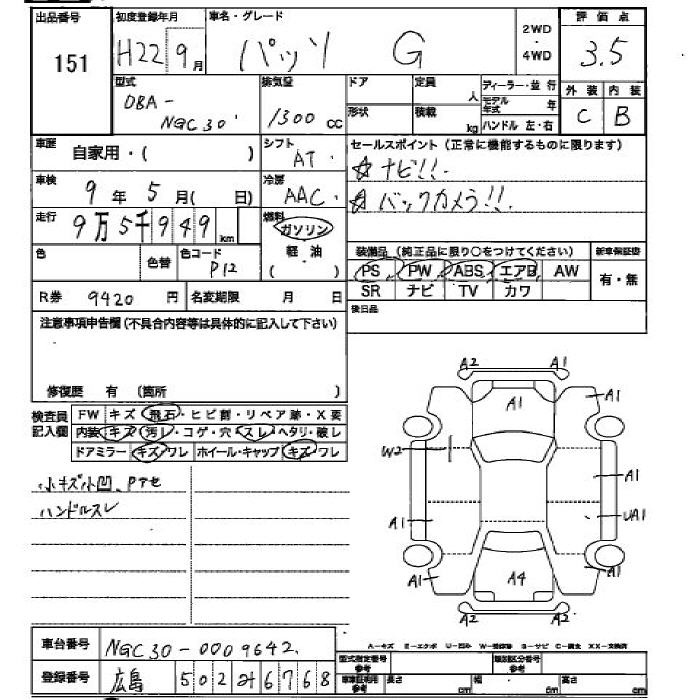 出品番号 初度登録年月 車名・グレード 2WD ・ 4WD 評価点
151 H22 9月 パッソ G 3.5
型式 排気量 ドア 定員 人 ディーラー・並行 外装 内装
DBA- NGC30 1300 cc 形状 積載 kg モデル年式 年 C B
ハンドル 左・右
車歴 自家用・( ) シフト AT セールスポイント(正常に機能するものに限ります)
☆ナビ!!
車検 9年 5月( 日) 冷房 AAC
☆バックカメラ!!
走行 9万5千949km 燃料 ガソリン
軽油
( )
色 色替 色コード P12 装備品(純正品に限り○をつけてください) 新車保証書
PS PW ABS エアB AW 有・無
SR ナビ TV カワ
R券 9420 円 名変期限 月 日
後日品
注意事項申告欄(不具合内容等は具体的に記入して下さい)
修復歴 有 (箇所 )
検査員記入欄 FW キズ・飛石・ヒビ割・リペア跡・X要
内装 キズ・汚レ・コゲ・穴・スレ・ヘタリ・破レ
ドアミラー キズ・ワレ ホイール・キャップ キズ・ワレ
小キズ小凹、Pアセ
ハンドルスレ
A2 A1
A1 A1
W2
A1
A1 UA1
A1 A4 A1
A2 A2
A-キズ E-エクボ U-凹み W-補修跡 S-サビ C-腐食 XX-交換済
車台番号 NGC30-0009642
型式指定番号 参考 類別区分番号 参考
登録番号 広島 502 み 6768
車庫証明用 参考 長さ cm 幅 cm 高さ cm